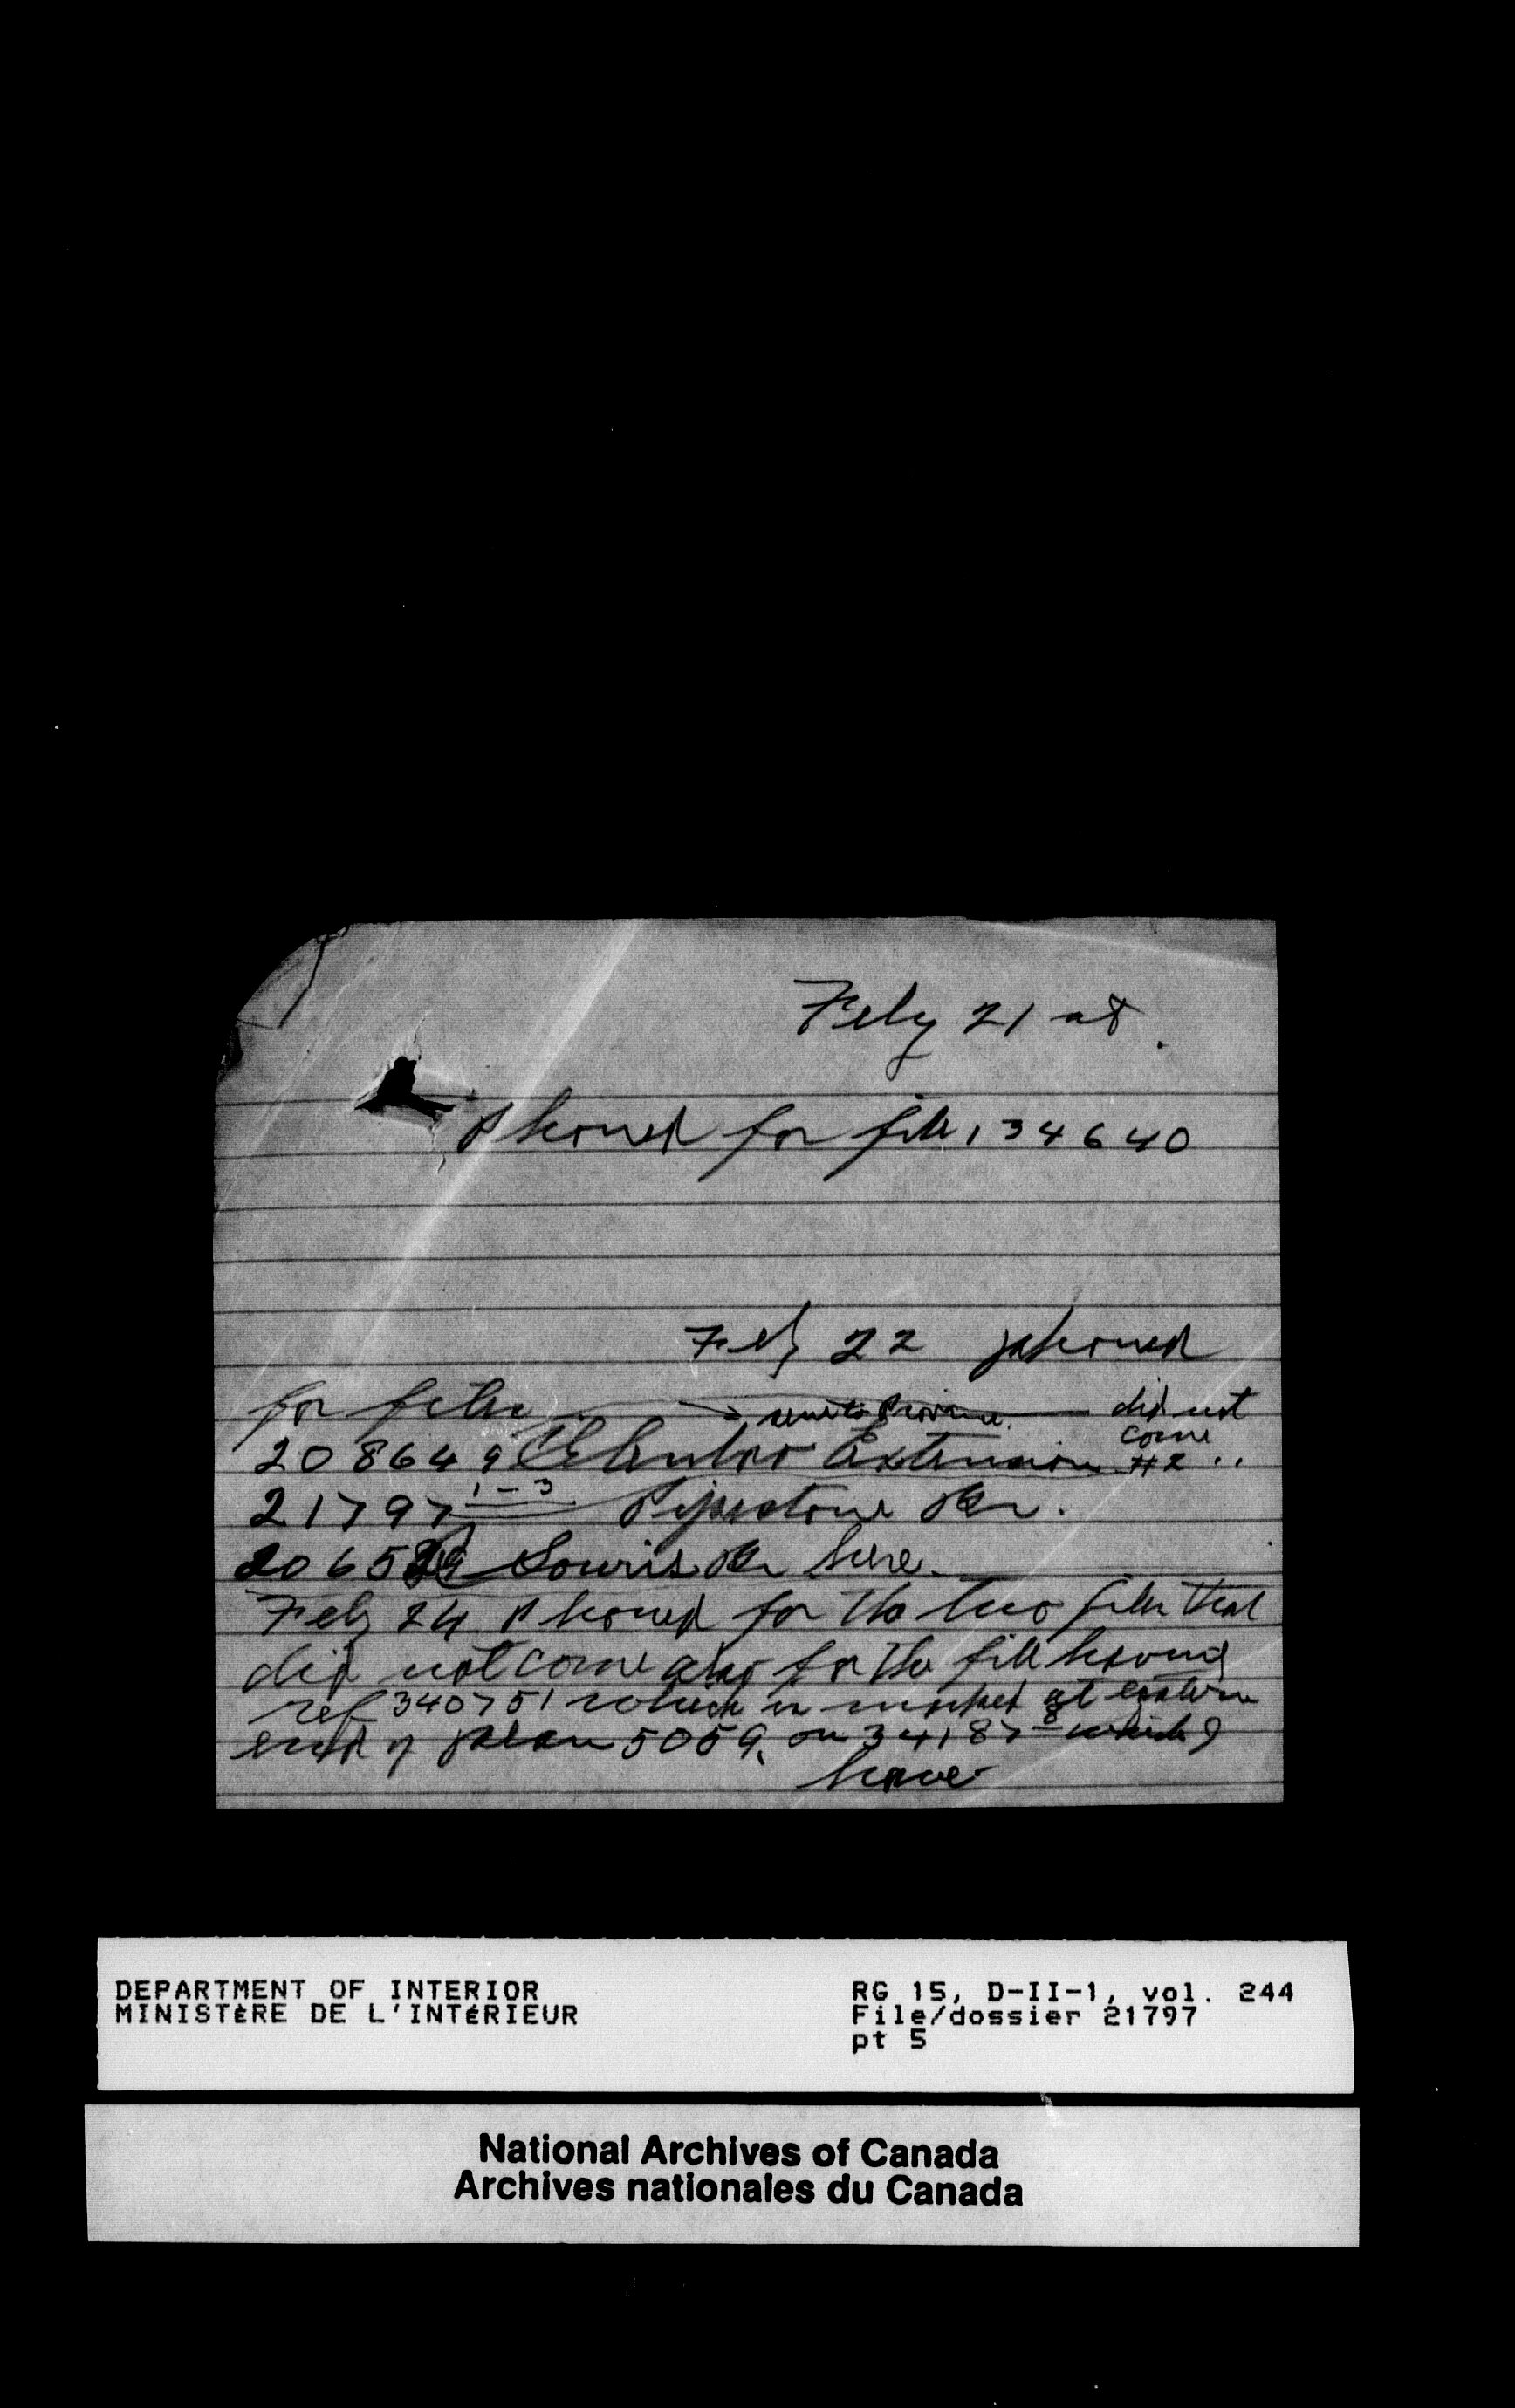 Feby 21 st.
Phoned for file 134640
Feby 22 phoned
for files sent to Province did not
come
208649 Extension #2 ..
21797 1-3 Pipestone Br.
20658 Souris Br here.
Feby 24 Phoned for the two files that
did not come also for the file having
ref 340751 which is marked at eastern
end of plan 5059, on 34187 8 which I
have
DEPARTMENT OF INTERIOR
MINISTÈRE DE L'INTÉRIEUR
RG 15, D-II-1, vol. 244
File/dossier 21797
pt 5
National Archives of Canada
Archives nationales du Canada